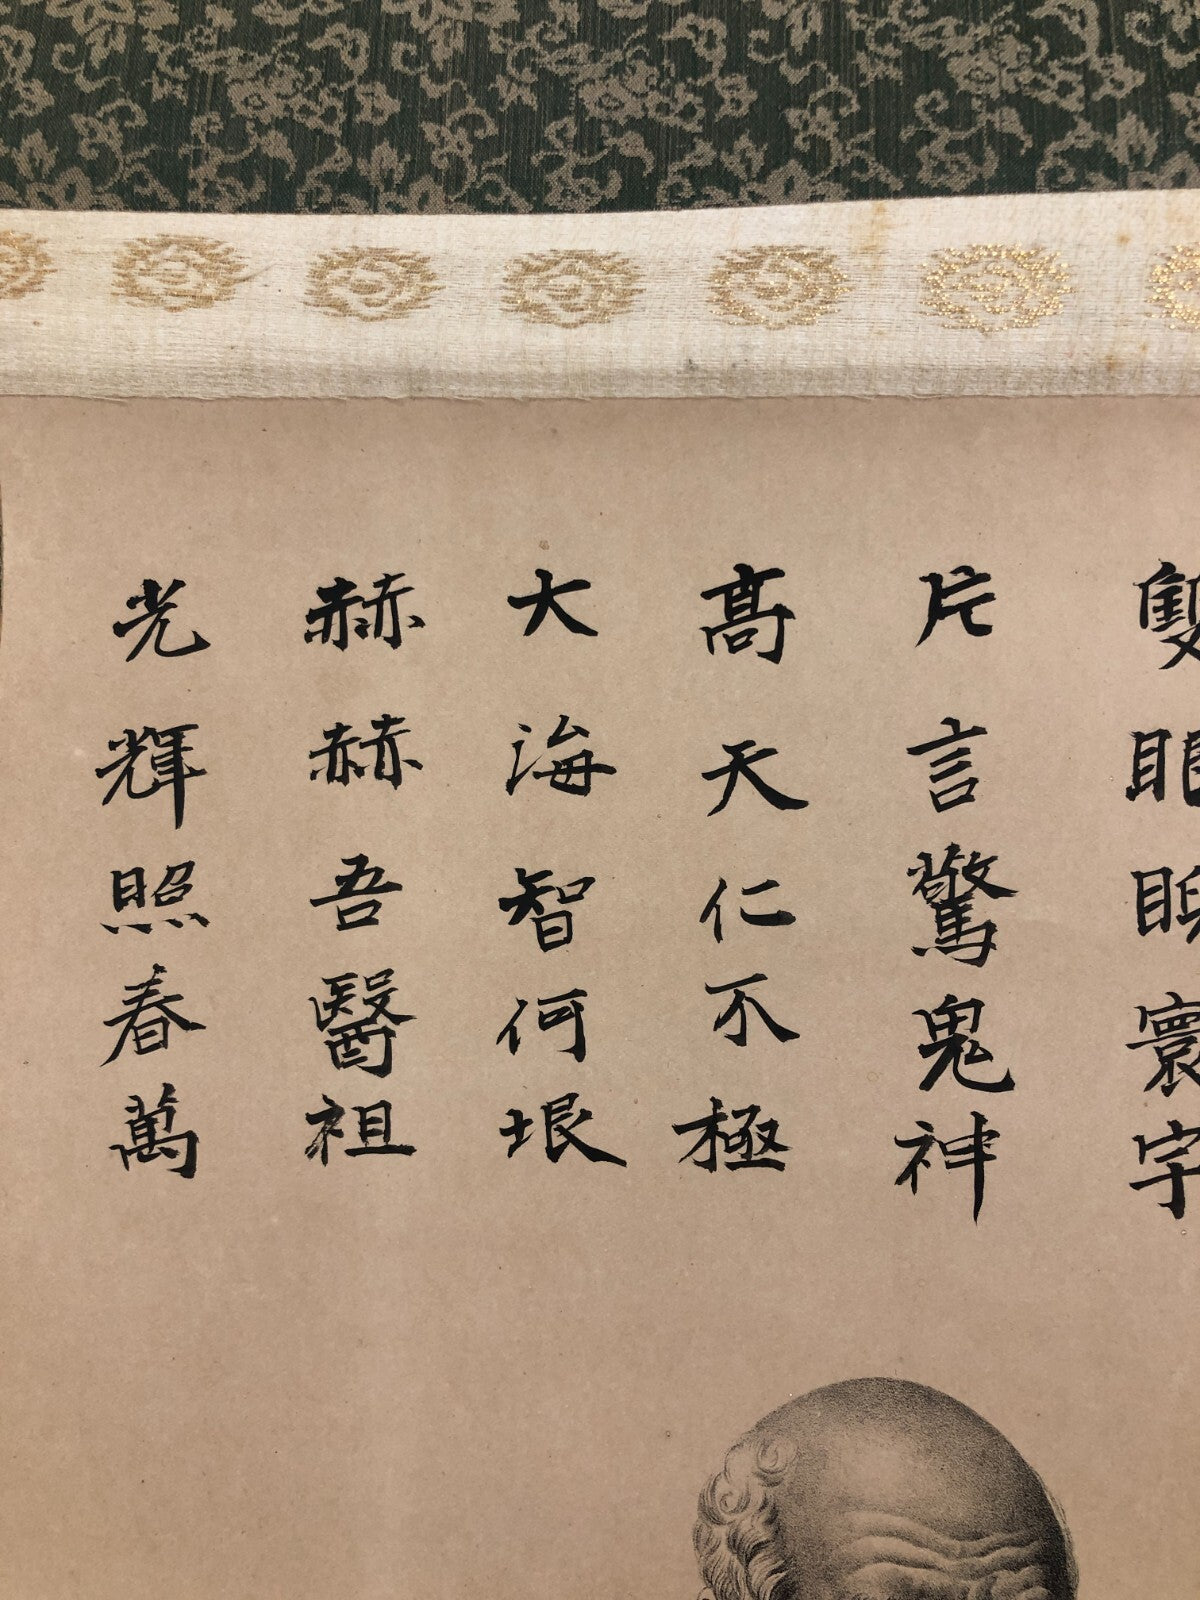 雙眼眎寰宇
片言驚鬼神
高天仁不極
大海智何垠
赫赫吾醫祖
光輝照春萬